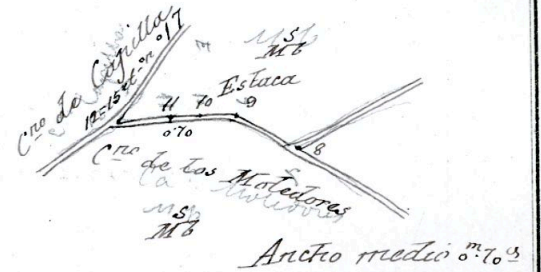 Cno de Capilla
12-15 et-on o17
M S b
Estaca
11 10 9
0.70
8
Cno de los Moledores
M S b
Ancho medio 0m.70cs